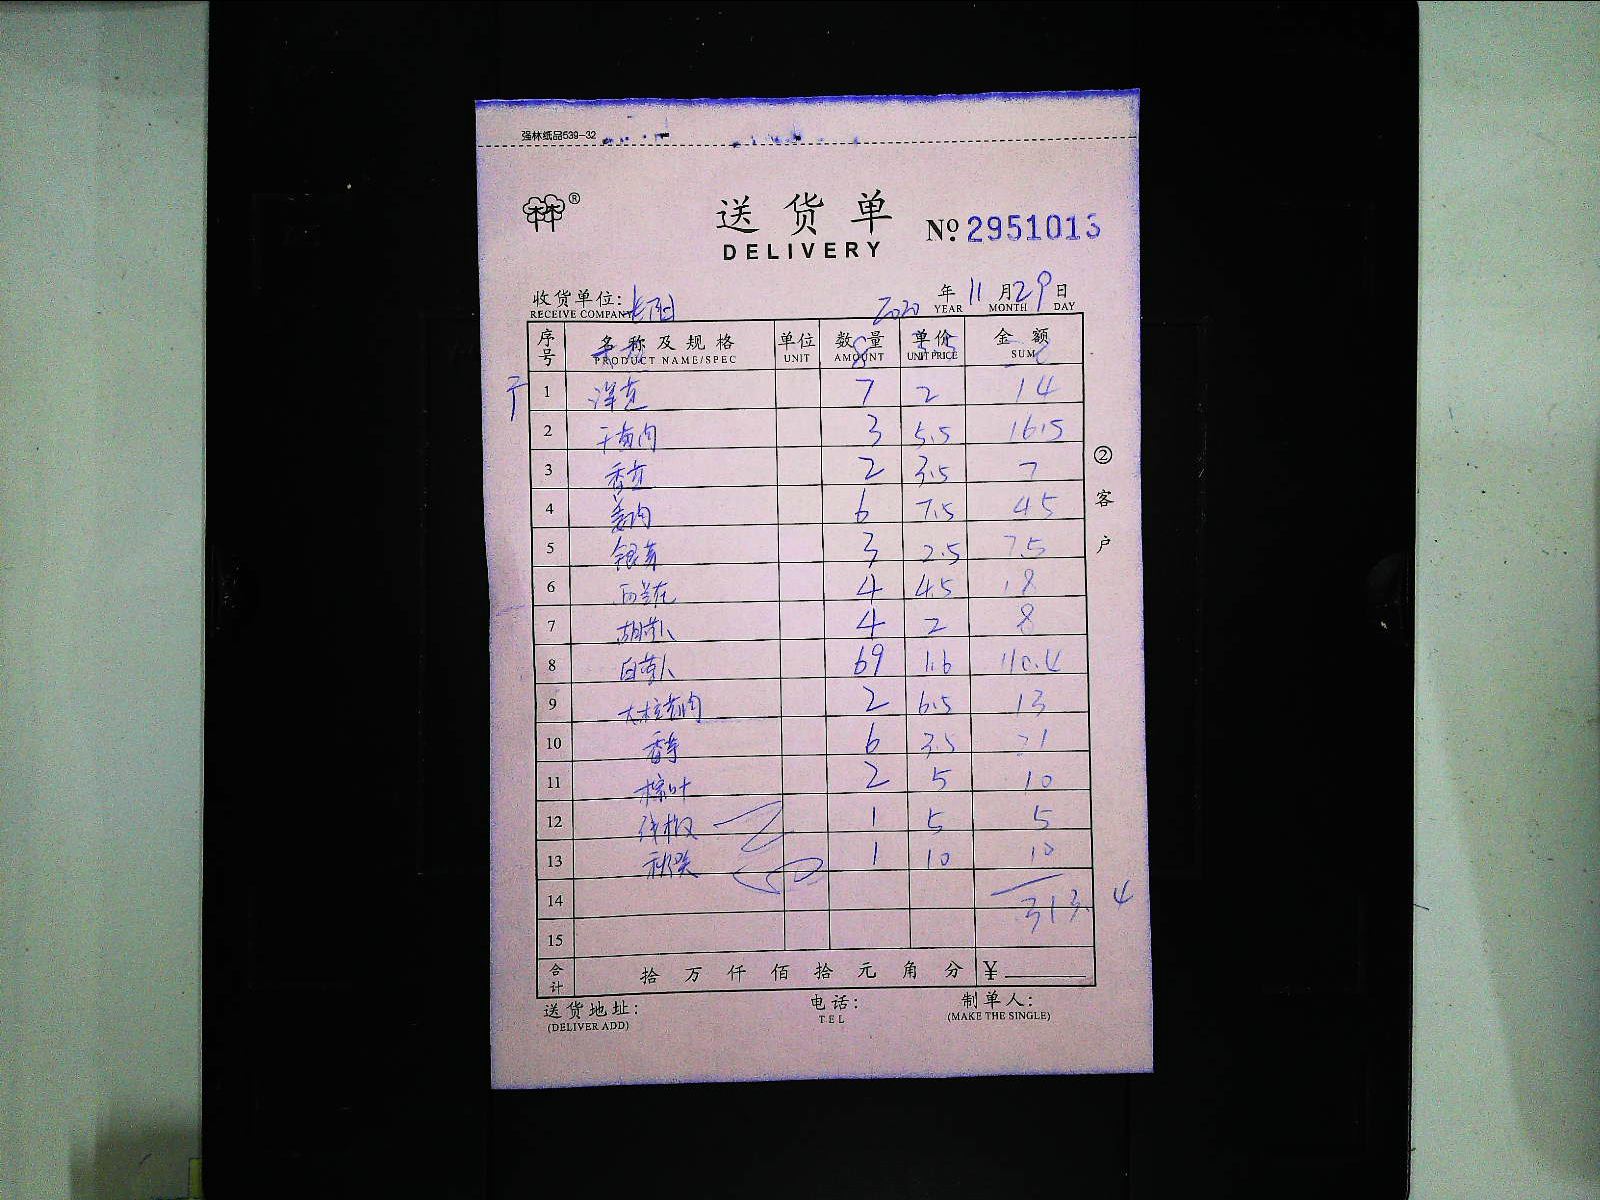 强林纸品539-32
林®
送货单 No 2951013
DELIVERY
收货单位: 2020年11月29日
RECEIVE COMPANY YEAR MONTH DAY
序号 名称及规格 单位 数量 单价 金额
PRODUCT NAME/SPEC UNIT AMOUNT UNIT PRICE SUM
1 洋芫 7 2 14
2 3 5.5 16.5
3 香芫 2 3.5 7
4 姜肉 6 7.5 45
5 银芽 3 2.5 7.5
6 西兰花 4 4.5 18
7 胡萝卜 4 2 8
8 白萝卜 69 1.6 110.4
9 2 6.5 13
10 香芹 6 3.5 21
11 粽叶 2 5 10
12 1 5 5
13 秋葵 1 10 10
14
313.4
15
合计 拾万仟佰拾元角分 ¥
送货地址: 电话: 制单人:
(DELIVER ADD) TEL (MAKE THE SINGLE)
②客户